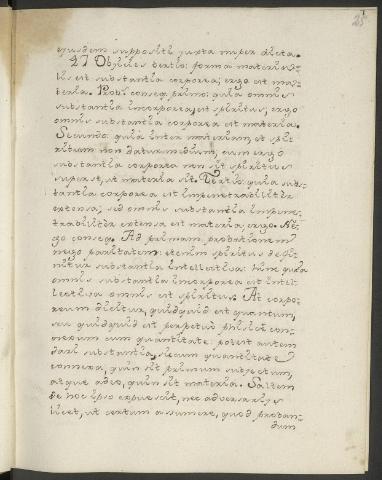 25
ejusdem suppositi juxta nuper dicta.
27 Objicies tertio: forma materia-
lis est substantia corporea; ergo est ma-
teria. Prob. conseq. primo: quia omnis
substantia incorporea, est spiritus; ergo
omnis substantia corporea est materia.
Secundo: quia inter materiam, et spi-
ritum non datur medium, cum ergo
substantia corporea non sit spiritus
superest, ut materia sit. Tertio: quia subs-
tantia corporea est impenetrabiliter
extensa; sed omnis substantia impene-
trabiliter extensa est materia; ergo. Ne-
go conseq. Ad primam probationem
nego paritatem: etenim spiritus defi-
nitur substantia intellectiva: hinc quia
omnis substantia incorporea est intel-
lectiva omnis est spiritus. At corpo-
reum dicitur, quidquid est quantum,
seu quidquid est perpetuo phisicè con-
nexum cum quantitate: potest autem
dari substantia, sic cum quantitate
connexa, quin sit primum subjectum,
atque adeo, quin sit materia. Saltem
de hoc ipso expuescit, nec adversariis
licet, ut certum assumere, quod proban-
dum